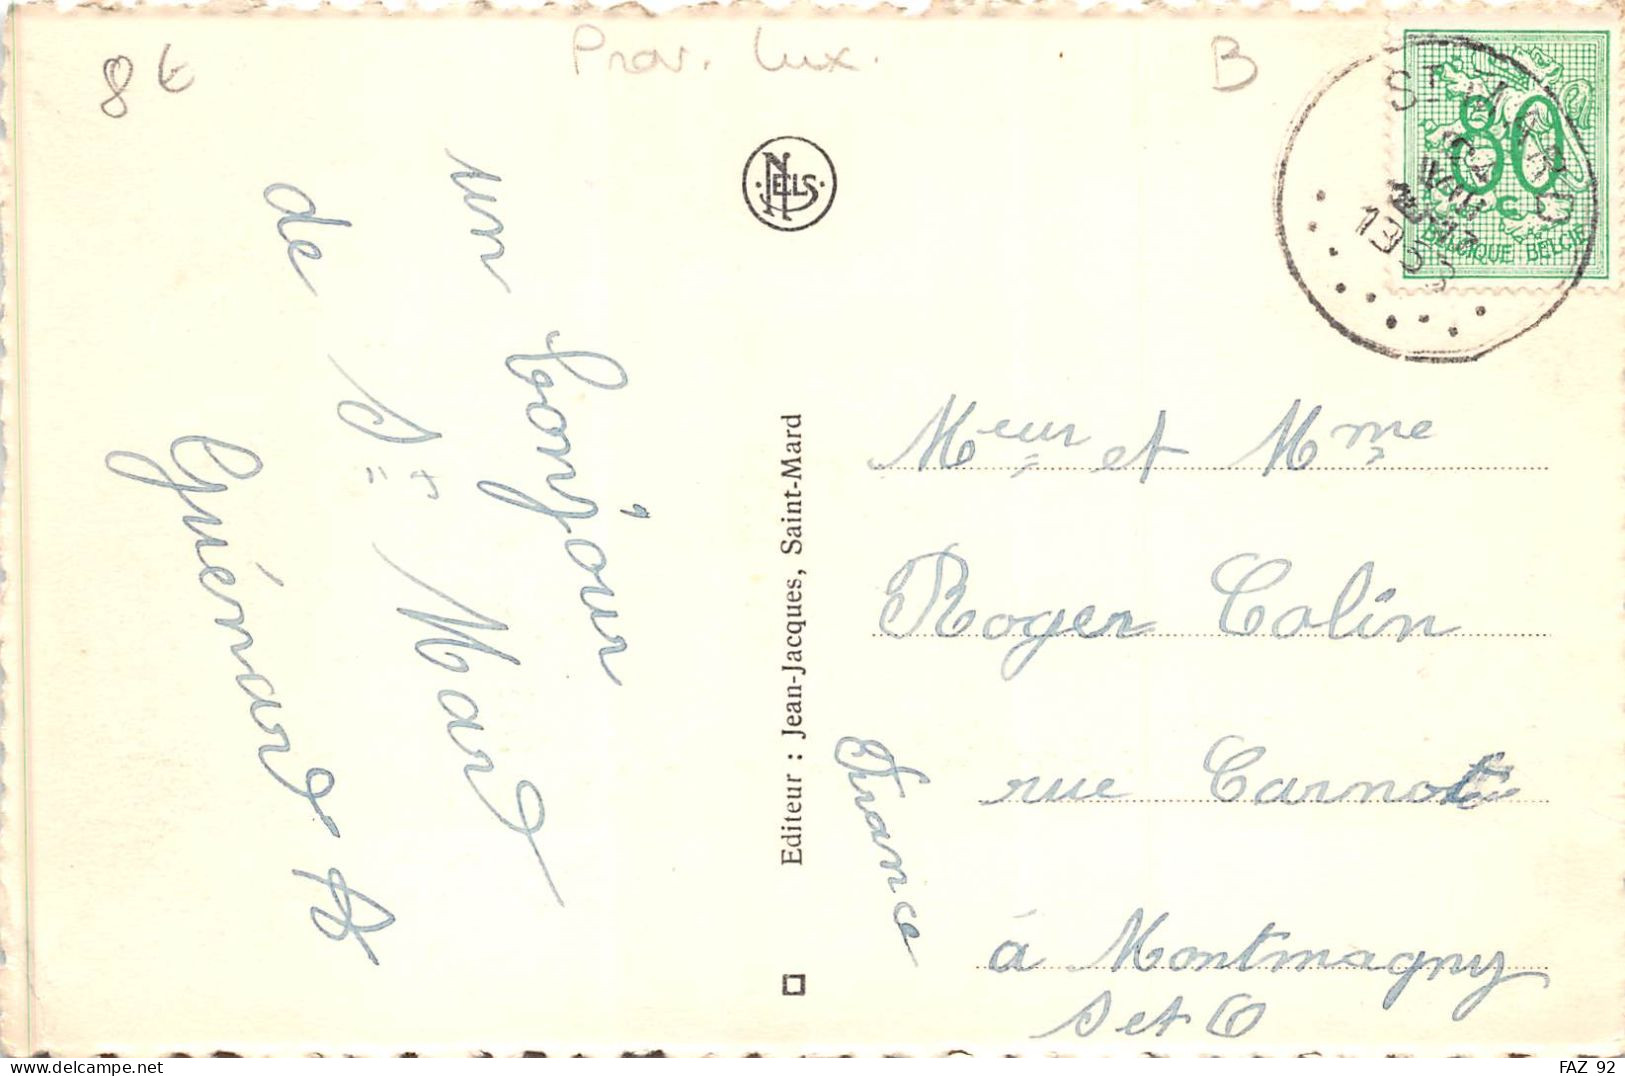 8 €
Prov. Lux.
B
un bonjour
de St Mard
Guénard
NELS
Editeur : Jean-Jacques, Saint-Mard
St MARD
1955
80
BELGIQUE BELGIE
Meur et Mme
Roger Colin
rue Carnot
à Montmagny
S et O
France
delcampe.net
FAZ 92